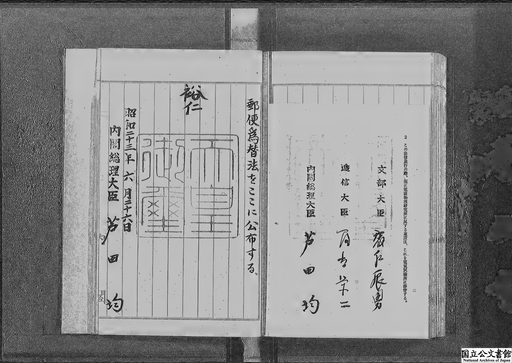 文部大臣 森戸辰男
逓信大臣 冨吉榮二
内閣総理大臣 芦田均
郵便爲替法をここに公布する。
裕仁
天皇
御璽
昭和二十三年六月二十六日
内閣総理大臣 芦田均
国立公文書館
National Archives of Japan